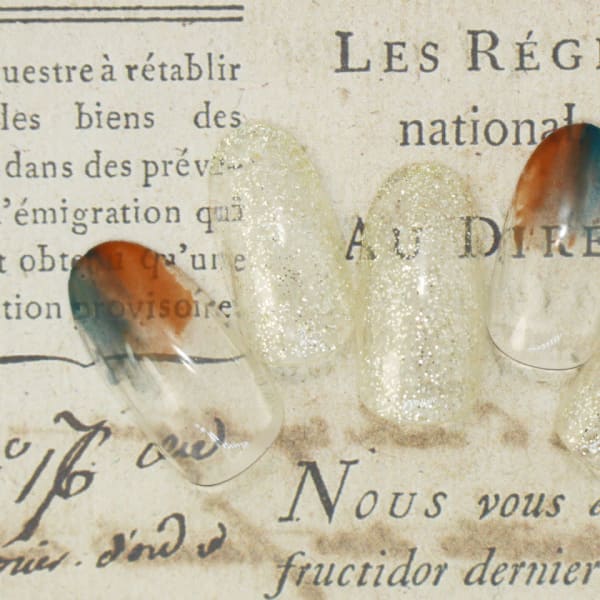 uestre à rétablir
les biens des
dans des prév
l'émigration qui
t obtenu qu'une
tion provisoire.
LES RÉG
national
AU DIRÉ
NOUS vous a
fructidor dernier